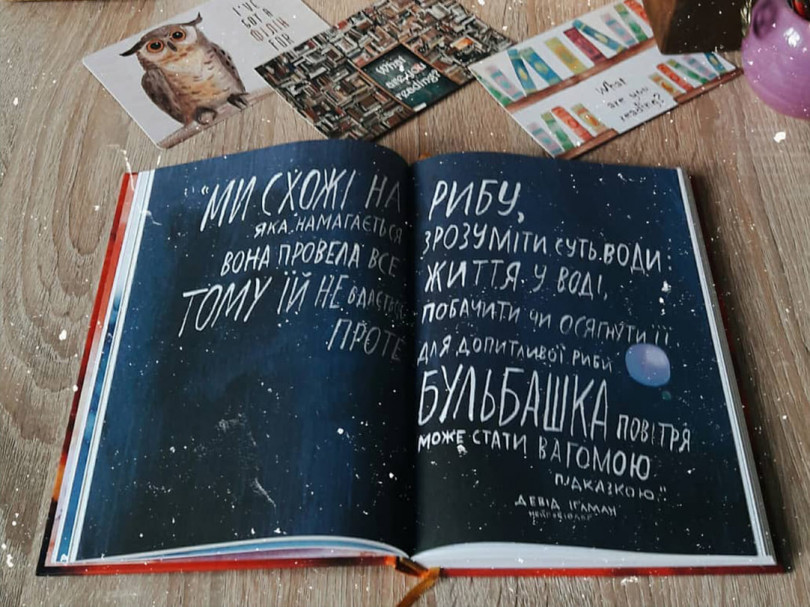 I'VE
GOT A
ФІЛІН
ГОР
What
are you
reading?
What
are you
reading?
"МИ СХОЖІ НА РИБУ,
ЯКА НАМАГАЄТЬСЯ ЗРОЗУМІТИ СУТЬ ВОДИ
ВОНА ПРОВЕЛА ВСЕ ЖИТТЯ У ВОДІ,
ТОМУ ЇЙ НЕ ВДАЄТЬСЯ ПОБАЧИТИ ЧИ ОСЯГНУТИ ЇЇ
ПРОТЕ ДЛЯ ДОПИТЛИВОЇ РИБИ
БУЛЬБАШКА ПОВІТРЯ
МОЖЕ СТАТИ ВАГОМОЮ
ПІДКАЗКОЮ."
ДЕВІД ІҐЛМАН
НЕЙРОБІОЛОГ